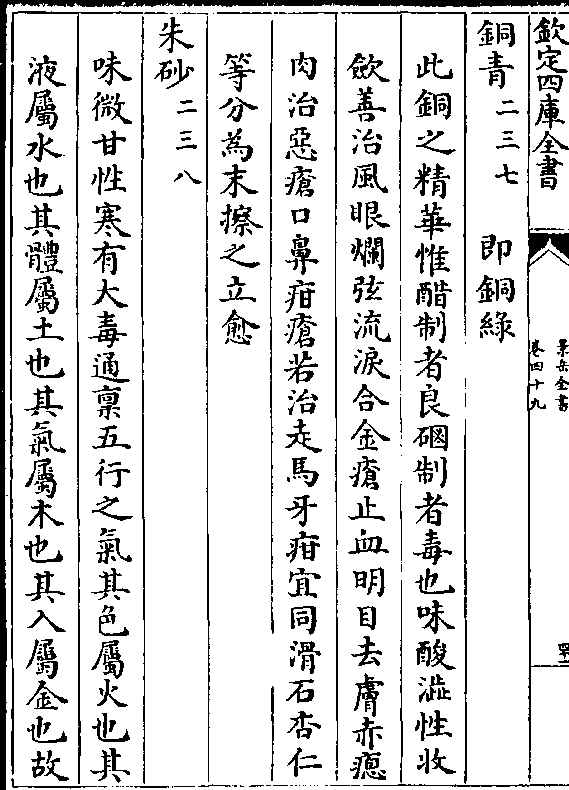 欽定四庫全書
景岳全書
卷四十九
銅青二三七　即銅綠
此銅之精華惟醋制者良硇制者毒也味酸澁性收
歛善治風眼爛弦流淚合金瘡止血明目去膚赤瘜
肉治惡瘡口鼻疳瘡若治走馬牙疳宜同滑石杏仁
等分為末擦之立愈
朱砂二三八
味微甘性寒有大毒通禀五行之氣其色屬火也其
液屬水也其體屬土也其氣屬木也其入屬金也故